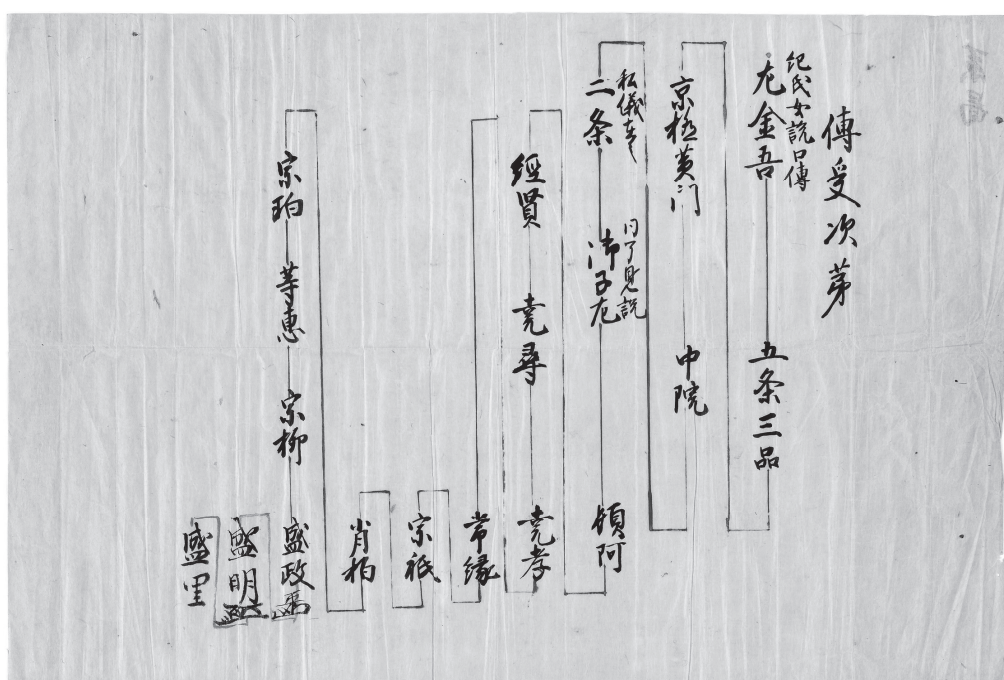 傳受次第
紀氏女説口傳
左金吾
五条三品
京極黄门
中院
私儀在之
二条
同了見説
御子左
頓阿
經賢
尭尋
尭孝
常縁
宗祇
肖柏
宗珀
等恵
宗柳
盛政
盛明
盛里